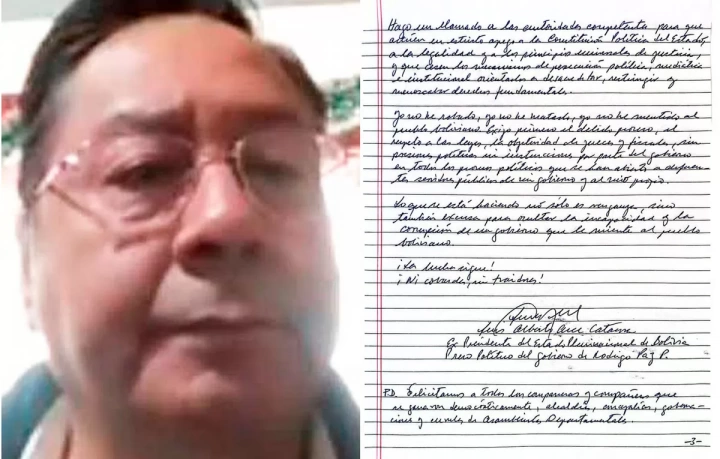 Hago un llamado a las autoridades competentes para que
actúen en estricto apego a la Constitución Política del Estado,
a la legalidad y a los principios universales de justicia,
y que cesen los mecanismos de persecución política, mediática
e institucional orientados a desacreditar, restringir y
menoscabar derechos fundamentales.
Yo no he robado, yo no he matado, yo no he mentido al
pueblo boliviano. Exijo primero el debido proceso, el
respeto a las leyes, la objetividad de jueces y fiscales, sin
presiones políticas ni instrucciones por parte del gobierno
en todos los procesos políticos que se han abierto a diferen-
tes servidores públicos de mi gobierno y al mío propio.
Lo que se está haciendo no sólo es venganza, sino
también excusa para ocultar la incapacidad y la
corrupción de un gobierno que le miente al pueblo
boliviano.
¡La lucha sigue!
¡Ni cobardes, ni traidores!
Luis Alberto Arce Catacora
Ex Presidente del Estado Plurinacional de Bolivia
Preso Político del gobierno de Rodrigo Paz P.
P.D. Felicitamos a todos los compañeros y compañeras que
se ganaron democráticamente, alcaldías, concejalías, goberna-
ciones y curules de Asambleístas Departamentales.
-3-